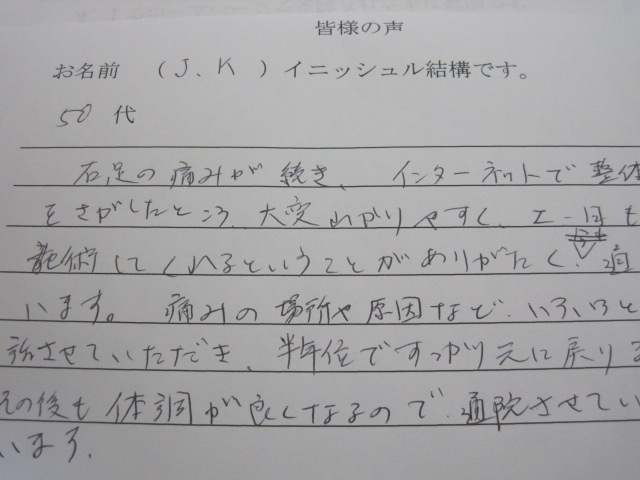 皆様の声
お名前　（J、K）イニッシュル結構です。
50 代
右足の痛みが続き、インターネットで整体
をさがしたところ、大変わかりやすく、エ一日も
施術してくれるということがありがたく、通
います。痛みの場所や原因など、いろいろと
話させていただき、半年位ですっかり元に戻りま
その後も体調が良くなるので、通院させてい
います。